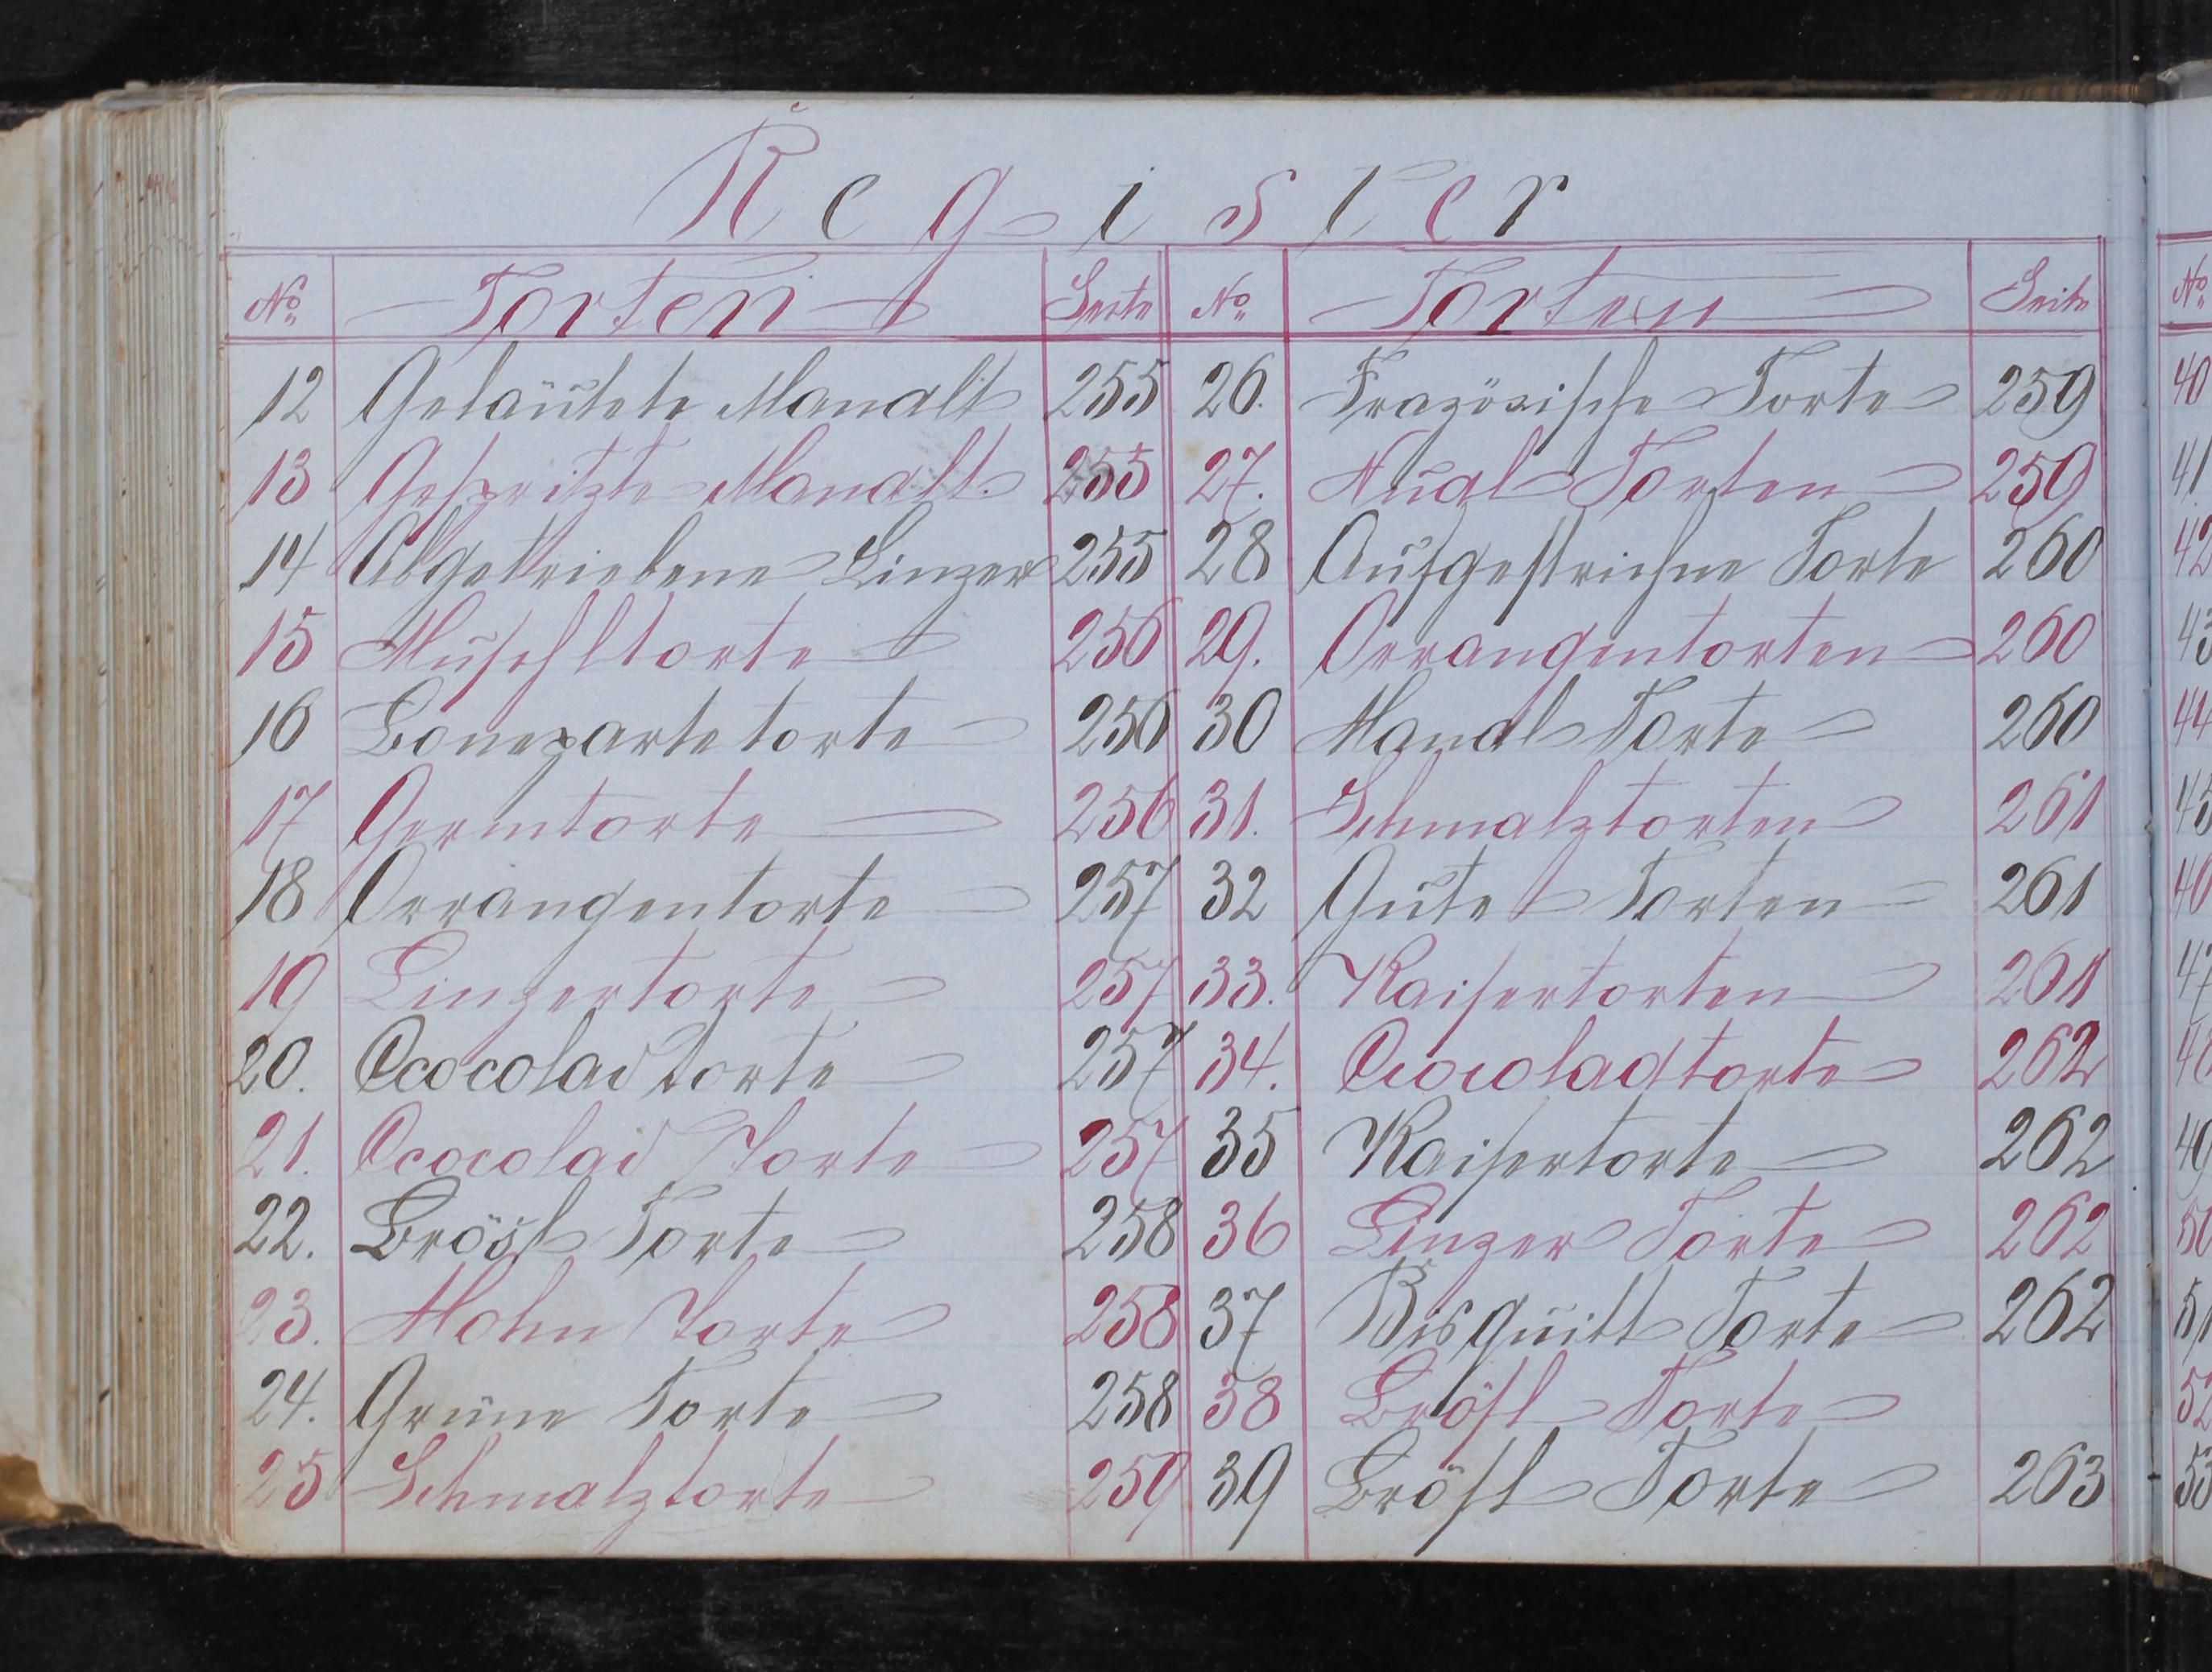 Register
No. Torten Seite No. Torten Seite
12 Geläutete Manalt 255 26. Frazösische Torte 259
13 Gespritzte Manalt. 255 27. Nual Torten 259
14 Abgetriebene Linzer 255 28 Aufgestrichne Torte 260
15 Muschltorte 256 29. Orrangentorten 260
16 Bonepartetorte 256 30 Manal Torte 260
17 Germtorte 256 31. Schmalztorten 261
18 Orrangentorte 257 32 Gute Torten 261
19 Linzertorte 257 33. Kaisertorten 261
20. Ococolad torte 257 34. Ococoladtorte 262
21. Ococolad Torte 257 35 Kaisertorte 262
22. Brösl Torte 258 36 Linzer Torte 262
23. Mohn Torte 258 37 Bisquitt Torte 262
24. Grüne Torte 258 38 Brösl Torte
25 Schmalztorte 259 39 Brösl Torte 263
No.
40
41
42
43
44
45
46
47
48
49
50
51
52
53